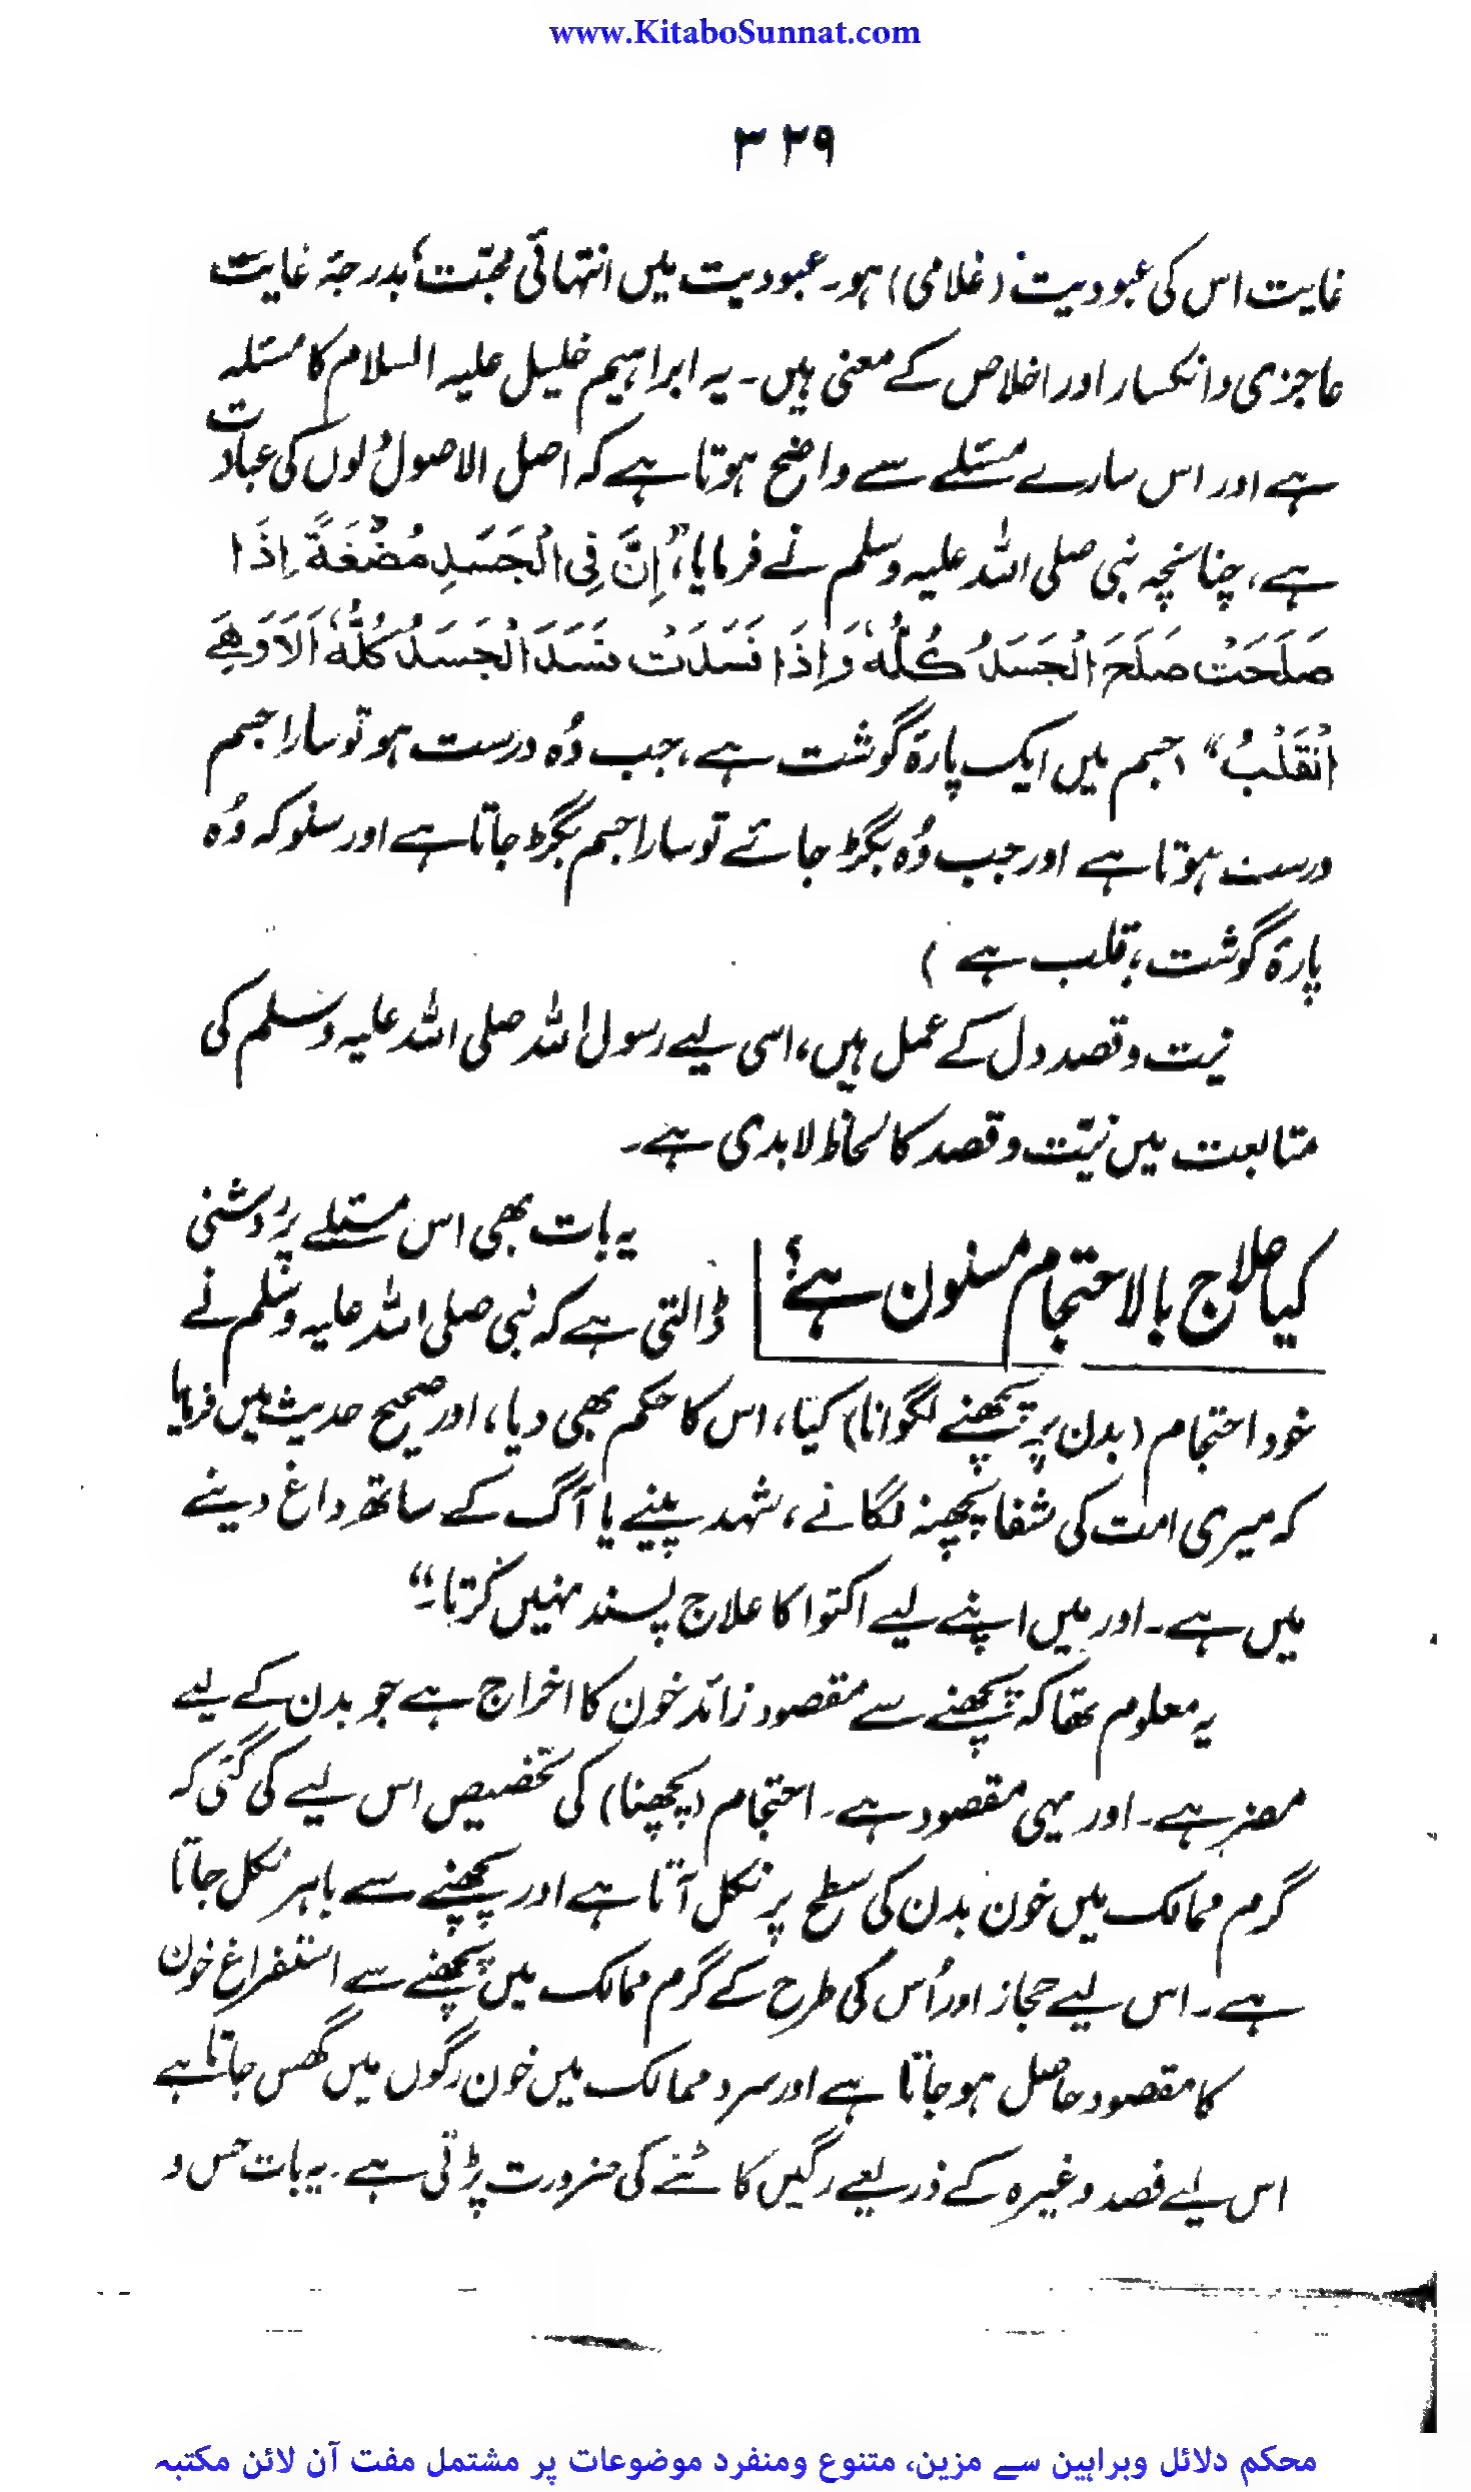 www.KitaboSunnat.com
۳۲۹
غایت اس کی عبودیت (غلامی) ہو۔ عبودیت میں انتہائی محبّت، بدرجۂ غایت
عاجزی و انکسار اور اخلاص کے معنی ہیں۔ یہ ابراہیم خلیل علیہ السلام کا مسئلہ
ہے اور اس سارے مسئلے سے واضح ہوتا ہے کہ اصل الاصول دلوں کی عبادت
ہے، چنانچہ نبی صلی اللہ علیہ وسلم نے فرمایا، "اِنَّ فِی الْجَسَدِ مُضْغَةً اِذَا
صَلَحَتْ صَلَحَ الْجَسَدُ کُلُّهٗ وَاِذَا فَسَدَتْ فَسَدَ الْجَسَدُ کُلُّهٗ اَلَا وَهِیَ
الْقَلْبُ" (جسم میں ایک پارۂ گوشت ہے، جب وُہ درست ہو تو سارا جسم
درست ہوتا ہے اور جب وُہ بگڑ جائے تو سارا جسم بگڑ جاتا ہے اور سنو کہ وُہ
پارۂ گوشت، قلب ہے)
نیت و قصد دل کے عمل ہیں، اسی لیے رسول اللہ صلی اللہ علیہ وسلم کی
متابعت میں نیّت و قصد کا لحاظ لابدی ہے۔
کیا علاج بالاحتجام مسنون ہے؟
یہ بات بھی اس مسئلے پر روشنی
ڈالتی ہے کہ نبی صلی اللہ علیہ وسلم نے
خود احتجام (بدن پر پچھنے لگوانا) کیا، اس کا حکم بھی دیا، اور صحیح حدیث میں فرمایا
کہ میری امت کی شفا پچھنہ لگانے، شہد پینے یا آگ کے ساتھ داغ دینے
میں ہے۔ اور میں اپنے لیے اکتوا کا علاج پسند نہیں کرتا۔"
یہ معلوم تھا کہ پچھنے سے مقصود زائد خون کا اخراج ہے جو بدن کے لیے
مضر ہے۔ اور یہی مقصود ہے۔ احتجام (پچھنا) کی تخصیص اس لیے کی گئی کہ
گرم ممالک میں خون بدن کی سطح پر نکل آتا ہے اور پچھنے سے باہر نکل جاتا
ہے۔ اس لیے حجاز اور اُس کی طرح کے گرم ممالک میں پچھنے سے استفراغِ خون
کا مقصود حاصل ہو جاتا ہے اور سرد ممالک میں خون رگوں میں گھس جاتا ہے
اس لیے فصد وغیرہ کے ذریعے رگیں کاٹنے کی ضرورت پڑتی ہے۔ یہ بات حس و
محکم دلائل وبراہین سے مزین، متنوع ومنفرد موضوعات پر مشتمل مفت آن لائن مکتبہ